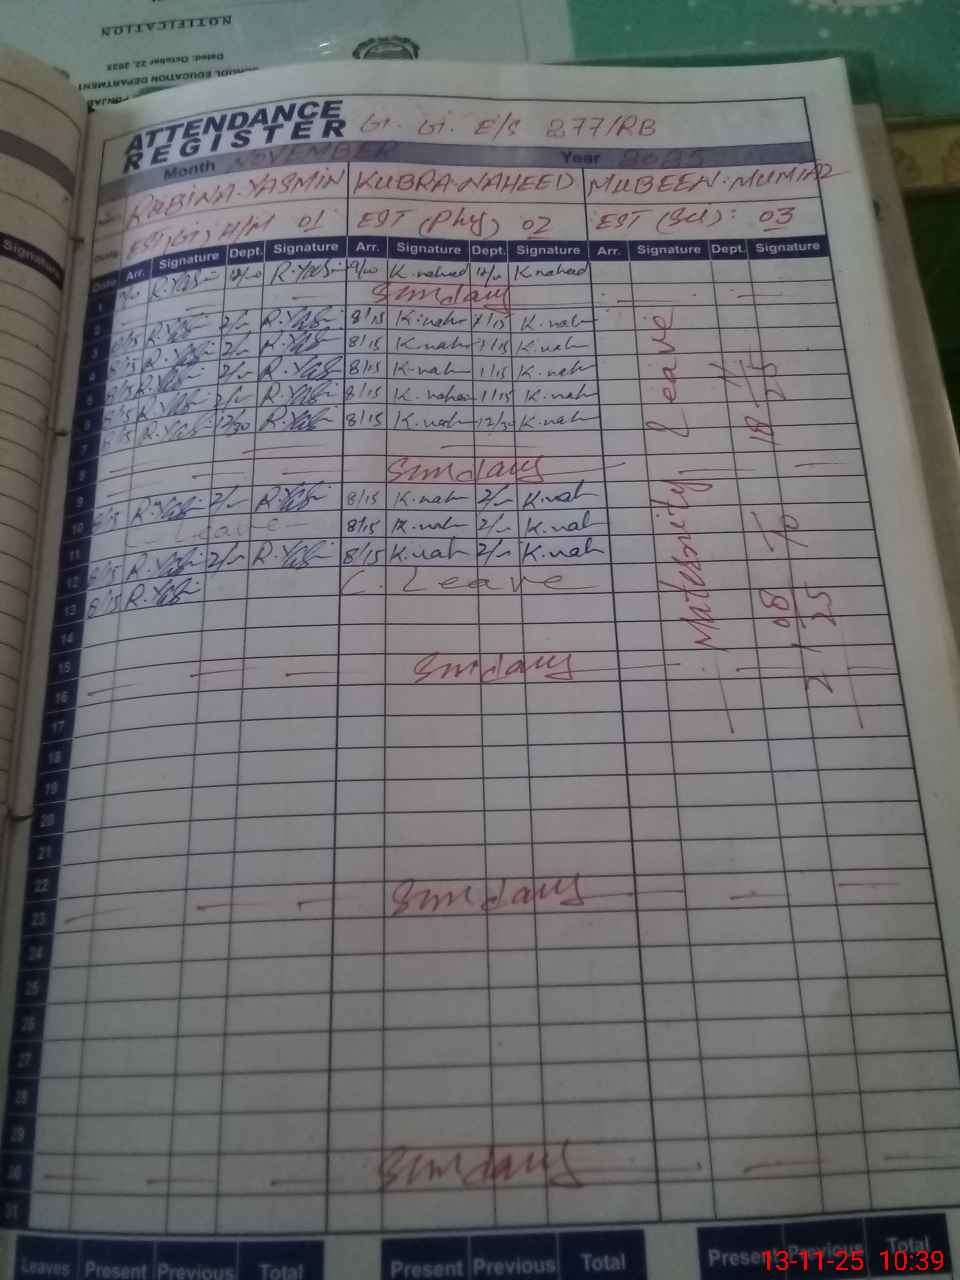 NOTIFICATION
Dated: October 22, 2025
SCHOOL EDUCATION DEPARTMENT
Signature
ATTENDANCE REGISTER
Gt. Gt. E/S 277/RB
Month NOVEMBER Year 2025
RUBINA YASMIN KUBRA NAHEED MUBEEN MUMTAZ
EST (Gt) H/M 01 EST (Phy) 02 EST (Sci): 03
Date Arr. Signature Dept. Signature Arr. Signature Dept. Signature Arr. Signature Dept. Signature
1 R.Yasi R.Yasi 9/00 K.nahed K.nahed
2 Sunday
3 8/15 R.Yasi R.Yasi 8/15 K.nah 1/15 K.nah
4 8/15 R.Yasi R.Yasi 8/15 K.nah 1/15 K.nah
5 8/15 R.Yasi R.Yasi 8/15 K.nah 1/15 K.nah
6 8/15 R.Yasi R.Yasi 8/15 K.nahee 1/15 K.nah
7 8/15 R.Yasi 12/30 R.Yasi 8/15 K.nah 12/30 K.nah
8
9 Sunday
10 8/15 R.Yasi R.Yasi 8/15 K.nah K.nah
11 C. Leave 8/15 K.nah K.nah
12 8/15 R.Yasi R.Yasi 8/15 K.nah K.nah
13 8/15 R.Yasi C. Leave
14
15
16 Sunday
17
18
19
20
21
22
23 Sunday
24
25
26
27
28
29
30 Sunday
31
Maternity Leave
21 08 25 To 18 11 25
Leaves Present Previous Total Present Previous Total Present Previous Total
13-11-25 10:39